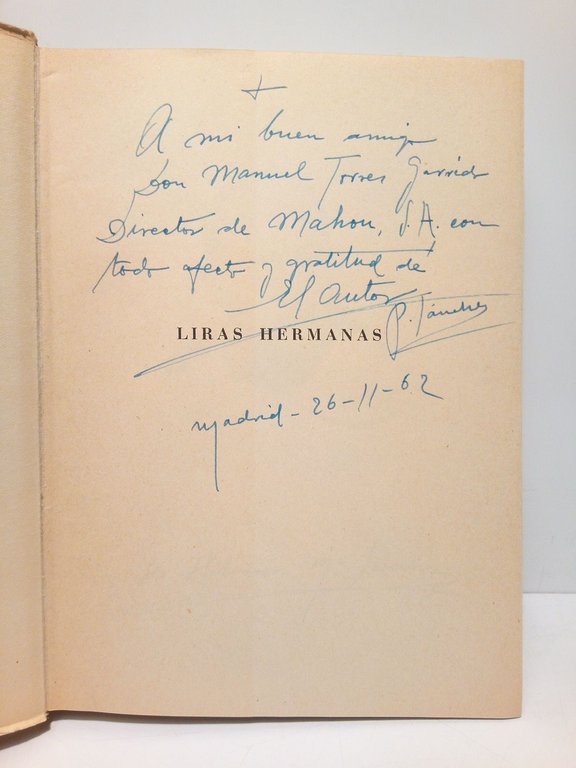 +
A mi buen amigo
Don Manuel Torres Garrido
Director de Mahou, S.A. con
todo afecto y gratitud de
El Autor
P. Sánchez
LIRAS HERMANAS
Madrid - 26-11-62